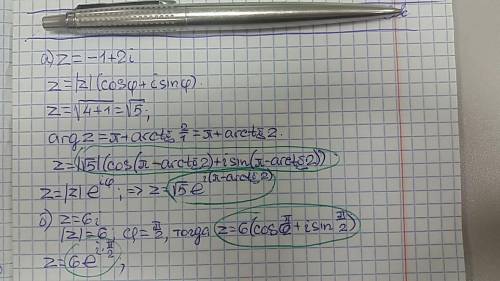 а) z = -1+2i
z = |z| (cosφ + i sinφ)
z = √4+1 = √5;
arg z = π + arctg 2/1 = π + arctg 2.
z = |√5| (cos(π - arctg 2) + i sin(π - arctg 2))
z = |z| e^iφ; => z = √5 e^i(π - arctg 2)
б) z = 6i
|z| = 6, φ = π/2, тогда z = 6(cos π/2 + i sin π/2)
z = 6 e^i·π/2;